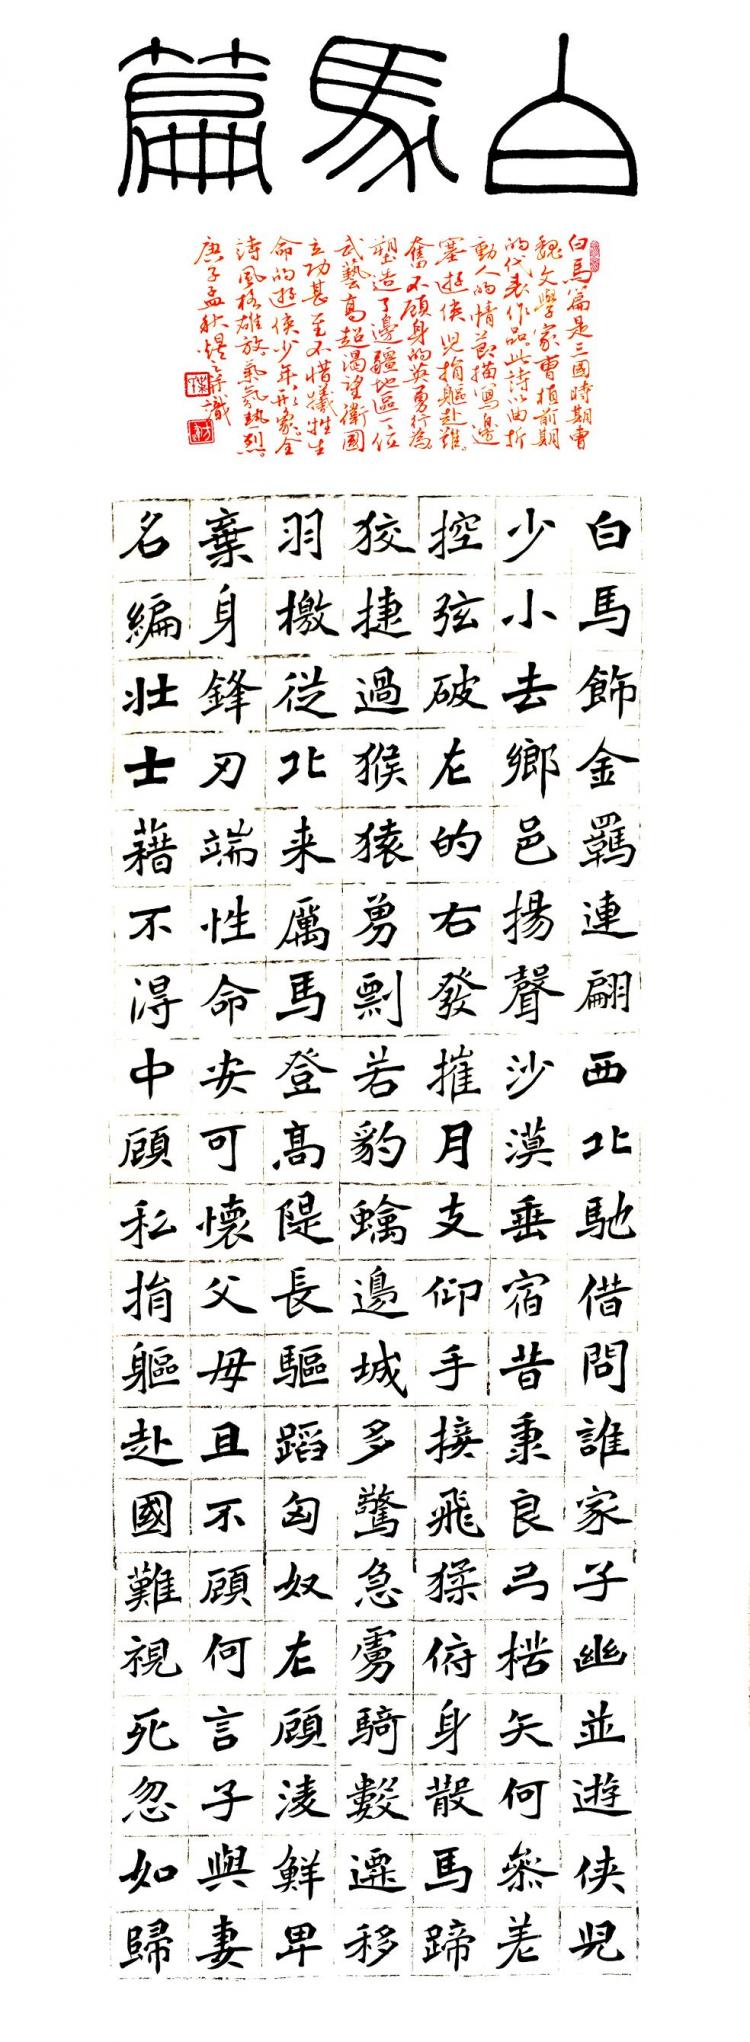 白馬篇
白馬篇是三國時期曹
魏文學家曹植前期
的代表作品此詩以曲折
動人的情節描寫邊
塞遊俠兒捐軀赴難。
奮不顧身的英勇行為
塑造了邊疆地區一位
武藝高超渴望衛國
立功甚至不惜犧牲生
命的遊俠少年形象。全
詩風格雄放。氣氛熱烈。
庚子孟秋 識
白馬飾金羈連翩西北馳借問誰家子幽並遊俠兒
少小去鄉邑揚聲沙漠垂宿昔秉良弓楛矢何參差
控弦破左的右發摧月支仰手接飛猱俯身散馬蹄
狡捷過猴猿勇剽若豹螭邊城多驚急虜騎數遷移
羽檄從北来厲馬登高隄長驅蹈匈奴左顧淩鮮卑
棄身鋒刃端性命安可懷父母且不顧何言子與妻
名編壯士藉不得中顧私捐軀赴國難視死忽如歸